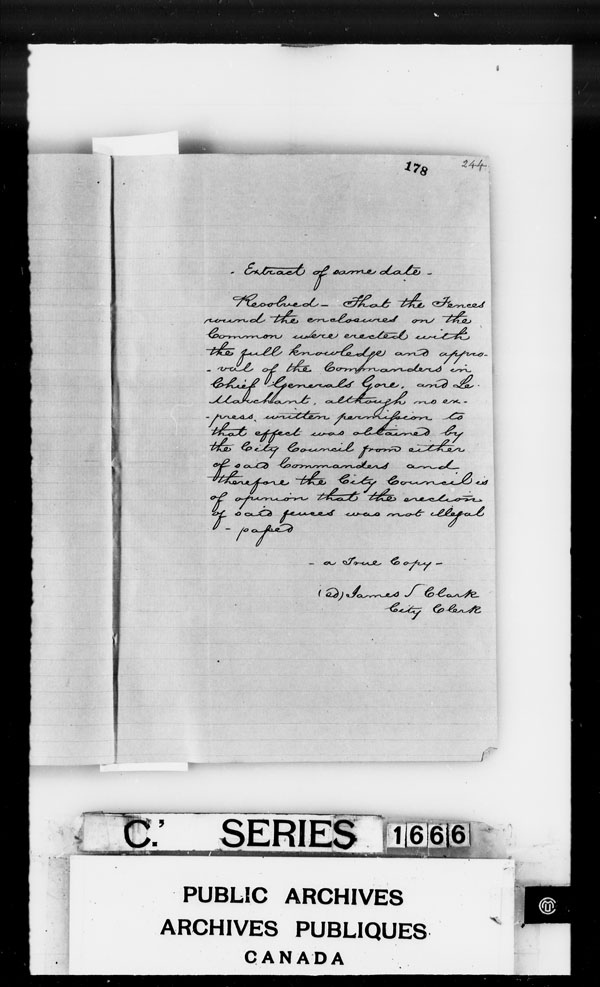 178 244
- Extract of same date -
Resolved - That the Fences
round the enclosures on the
Common were erected with
the full knowledge and appro-
-val of the Commanders in
Chief Generals Gore, and Le
Marchant, although no ex-
-press, written permission to
that effect was obtained by
the City Council from either
of said Commanders and
therefore the City Council is
of opinion that the erection
of said fences was not illegal
- passed
- a True Copy -
(sd) James S Clark
City Clerk
C.' SERIES 1666
PUBLIC ARCHIVES
ARCHIVES PUBLIQUES
CANADA